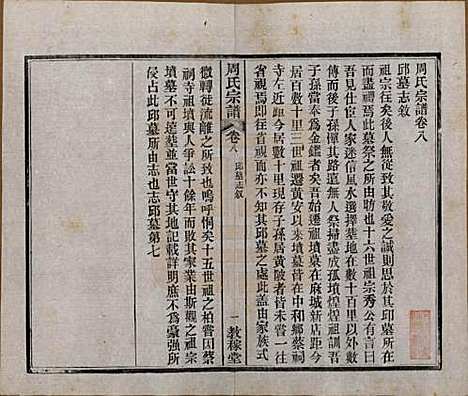 周氏宗譜卷八
邱墓志敘
祖宗往矣後人無從致其敬愛之誠則思於其邱墓所在
而盡禋焉此墓祭之所由昉也十六世祖宗秀公有言曰
吾見仕宦人家迷信風水選擇墓地在數十百里外一再
傳而後子孫憚其路遠無人祭掃盡成孤墳煌煌祖訓吾
子孫當奉為金鑑者矣吾始遷祖墳墓在麻城新店距今
居百數十里三世祖遷黃安以來墳墓皆在中和鄉蔡祠
寺左近距今居數十里現存子孫居黃陂者皆未嘗一
省視焉即往省視而亦不知其邱墓之處此蓋由家族式
周氏宗譜
卷八
邱墓志敘
一
教稼堂
微轉徙流離之所致也嗚呼恫矣十五世祖之柏嘗因蔡
祠寺祖墳與人爭訟十餘年而敗其家業由斯觀之祖宗
墳墓不可遠塟並當世守其地記載詳明庶不為豪強所
侵占此邱墓所由志也志邱墓第七